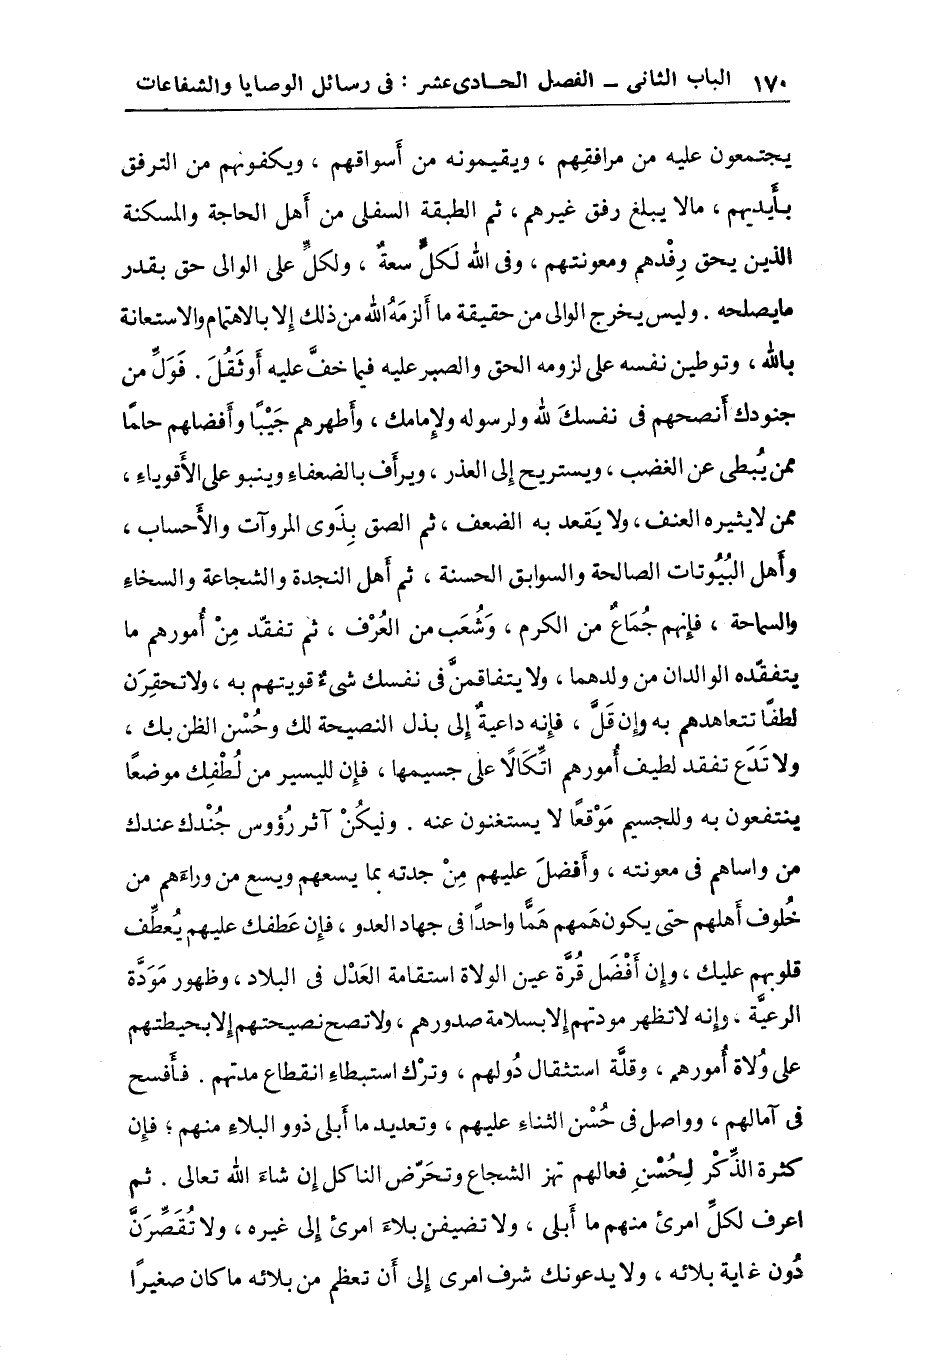 ١٧٠ الباب الثانى – الفصل الحادى عشر : فى رسائل الوصايا والشفاعات
يجتمعون عليه من مرافقِهم ، ويقيمونه من أَسواقهم ، ويكفونهم من الترفق
بأَيديهم ، مالا يبلغ رفق غيرهم ، ثم الطبقة السفلى من أَهل الحاجة والمسكنة
الذين يحق رِفْدهم ومعونتهم ، وفى الله لَكلٍّ سعةٌ ، ولكلٍّ على الوالى حق بقدر
مايصلحه . وليس يخرج الوالى من حقيقة ما أَلزمَهُ الله من ذلك إلا بالاهتمام والاستعانة
بالله ، وتوطين نفسه على لزومه الحق والصبر عليه فيما خفَّ عليه أَو ثَقُلَ . فَوَلِّ من
جنودك أَنصحهم فى نفسكَ لله ولرسوله ولإمامك ، وأَطهرهم جَيْبًا وأَفضلهم حلمًا
ممن يُبطى عن الغضب ، ويستريح إلى العذر ، ويرأَف بالضعفاء وينبو على الأَقوياءِ ،
ممن لايثيره العنف ، ولا يَقعد به الضعف ، ثم الصق بِذَوى المروآت والأَحساب ،
وأَهل البُيُوتات الصالحة والسوابق الحسنة ، ثم أَهل النجدة والشجاعة والسخاءِ
والسماحة ، فإنهم جُمَاعٌ من الكرم ، وَشُعَب من العُرْف ، ثم تفقد مِنْ أُمورهم ما
يتفقّده الوالدان من ولدهما ، ولا يتفاقمنَّ فى نفسك شىءٌ قويتهم به ، ولا تحقِرَن
لطفًا تتعاهدهم به وإن قَلَّ ، فإنه داعيةٌ إلى بذل النصيحة لك وحُسْن الظن بك ،
ولا تَدَع تفقد لطيف أُمورهم اتِّكَالًا على جسيمها ، فإن لليسير من لُطْفِك موضعًا
ينتفعون به وللجسيم مَوْقعًا لا يستغنون عنه . وليكُنْ آثر رُؤوس جُنْدك عندك
من واساهم فى معونته ، وأَفضلَ عليهم مِنْ جدته بما يسعهم ويسع من وراءَهم من
خُلوف أَهلهم حتى يكون هَمهم هَمًّا واحدًا فى جهاد العدو ، فإن عَطفك عليهم يُعطِّف
قلوبهم عليك ، وإن أَفْضَل قُرَّة عين الولاة استقامة العَدْل فى البلاد ، وظهور مَوَدَّة
الرعيَّة ، وإنه لا تظهر مودتهم إلا بسلامة صدورهم ، ولا تصح نصيحتهم إلا بحيطتهم
على وُلاة أُمورهم ، وقلَّة استثقال دُولهم ، وترْك استبطاءِ انقطاع مدتهم . فأَفسح
فى آمالهم ، وواصل فى حُسْن الثناءِ عليهم ، وتعديد ما أَبلى ذوو البلاءِ منهم ؛ فإن
كثرة الذِّكْر لِحُسْنِ فعالهم تهز الشجاع وتحَرّض الناكل إن شاءَ الله تعالى . ثم
اعرف لكلِّ امرئ منهم ما أَبلى ، ولا تضيفن بلاءَ امرئ إلى غيره ، ولا تُقَصِّرَنَّ
دُون غاية بلائه ، ولا يدعونك شرف امرى إلى أَن تعظم من بلائه ما كان صغيرًا